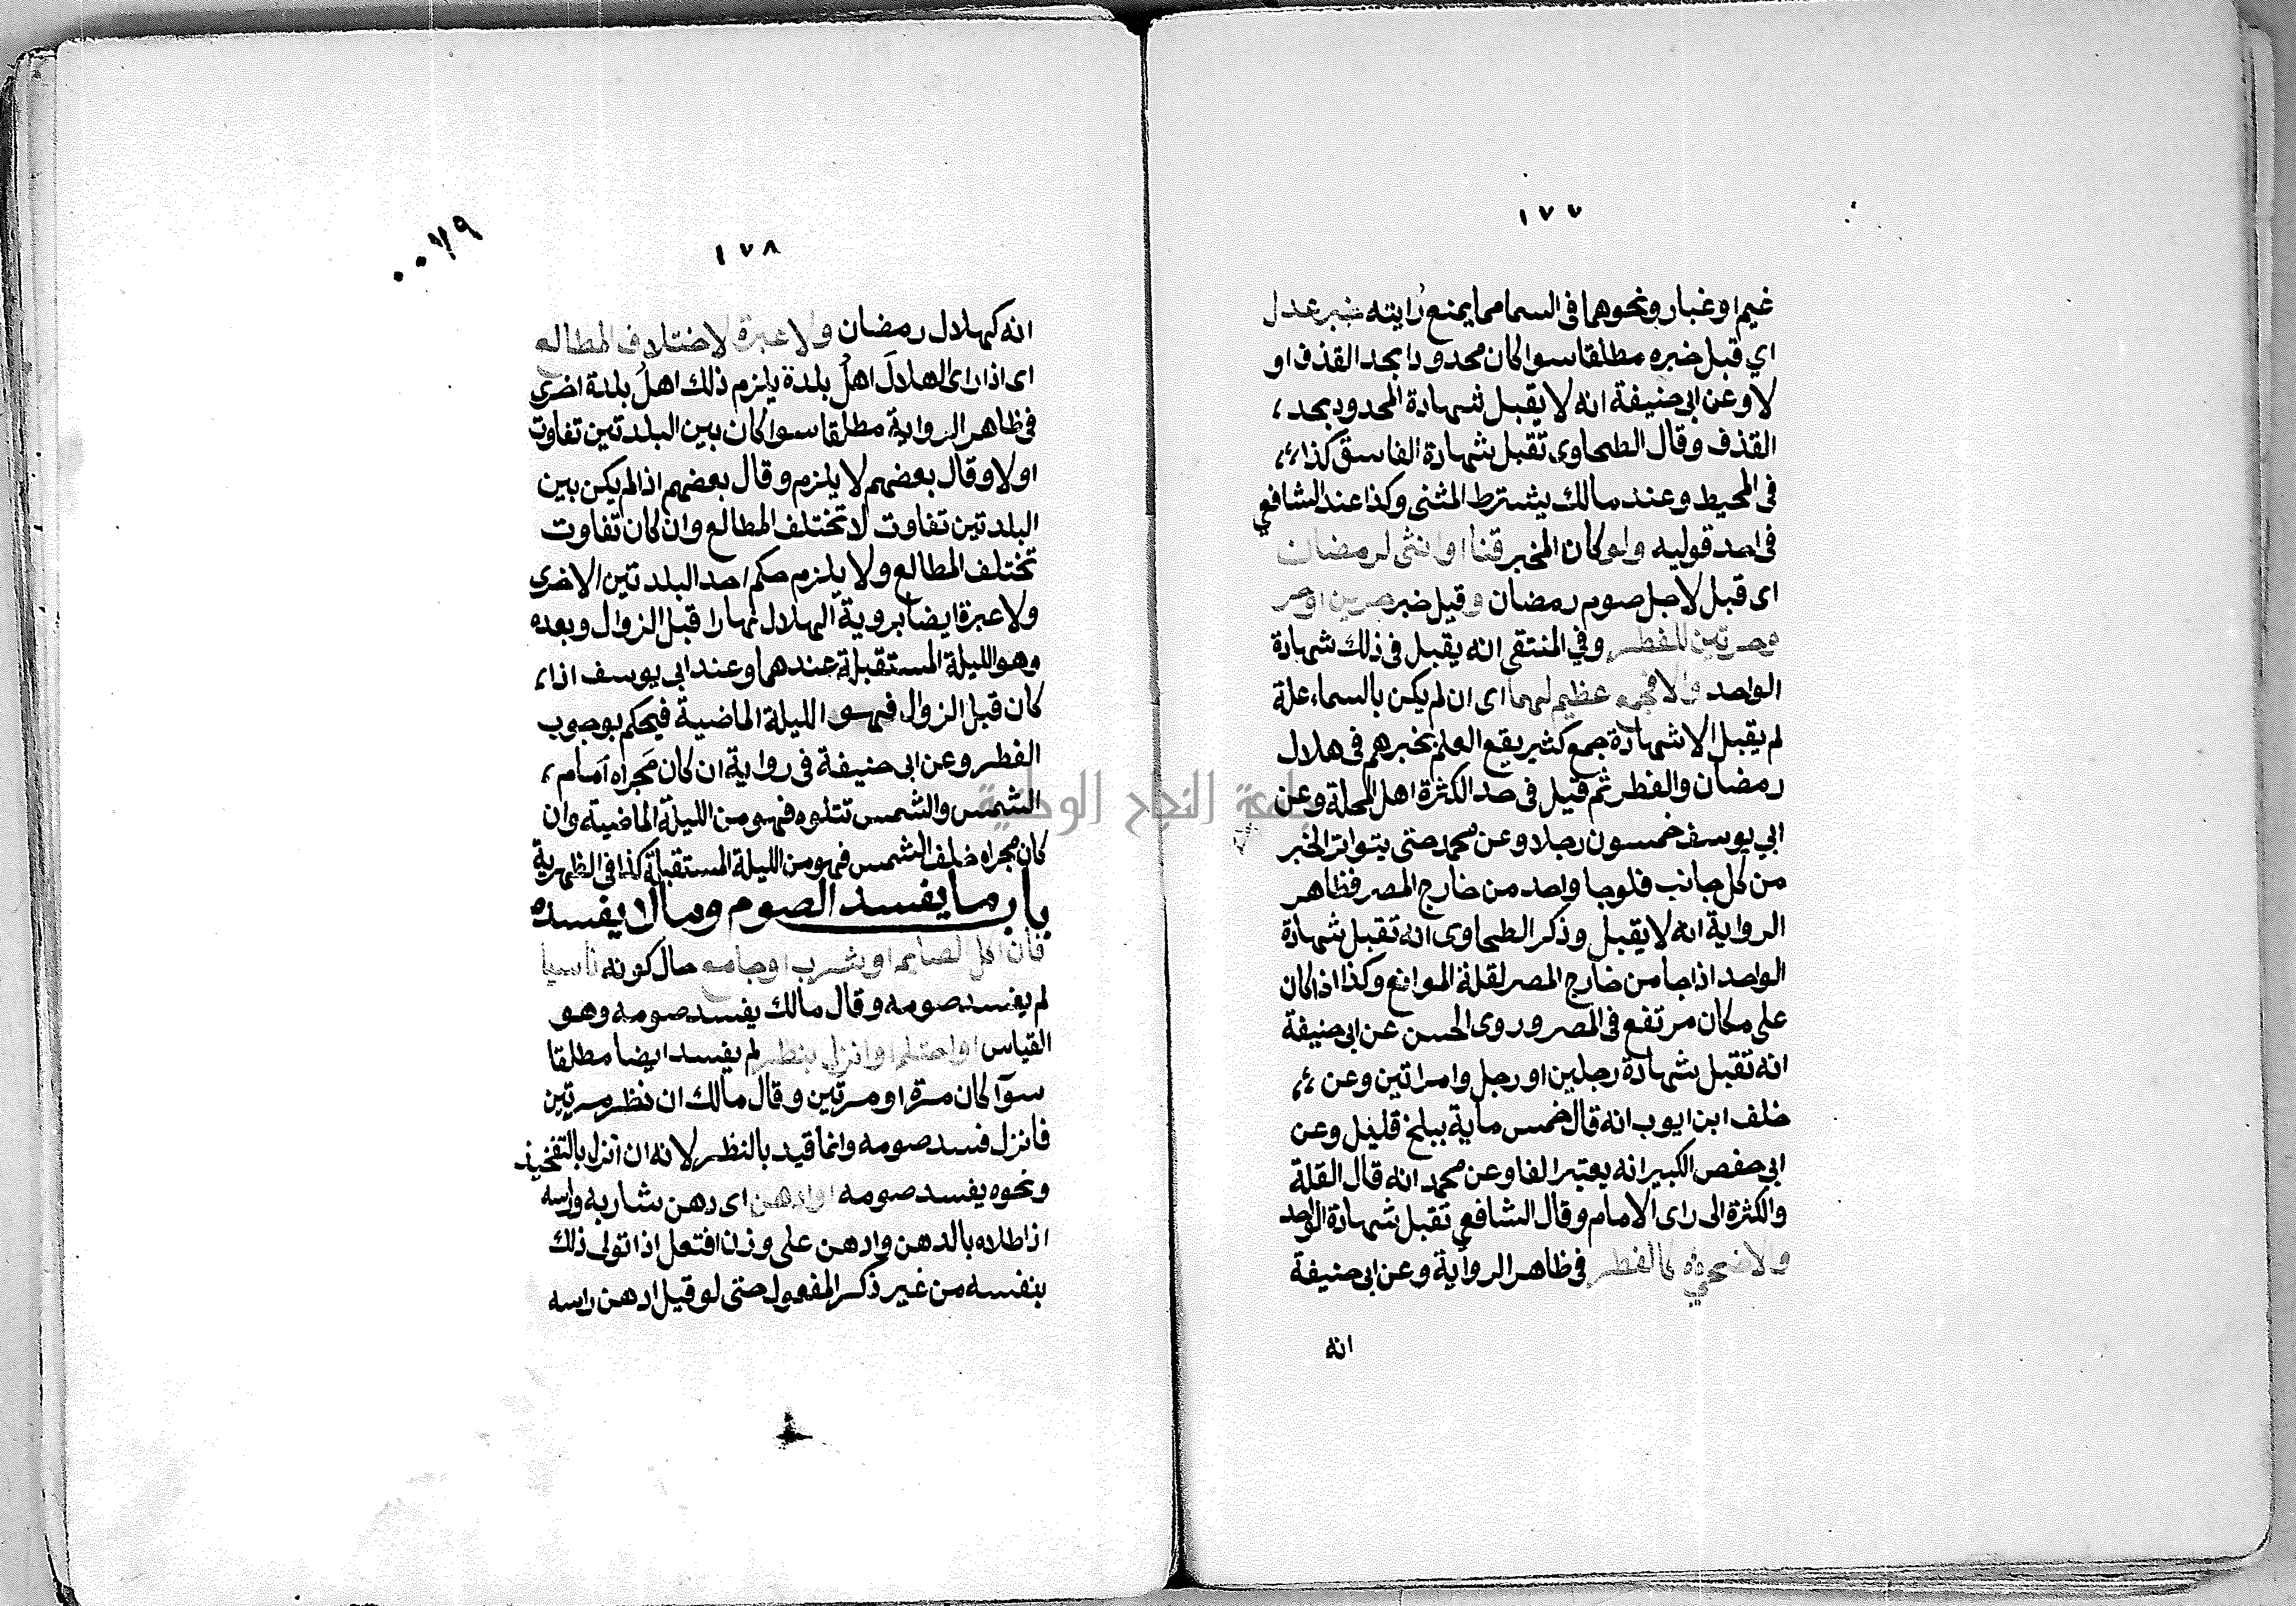 ١٧٧
غيم او غبار ونحوهما في السما مما يمنع رايته خبر عدل
اي قبل خبره مطلقا سوا كان محدودا بحد القذف او
لا وعن ابي حنيفة انه لا يقبل شهادة المحدود بحد
القذف وقال الطحاوي تقبل شهادة الفاسق كذا
في المحيط وعند مالك يشترط المثنى وكذا عند الشافعي
في احد قوليه ولو كان المخبر قنا او انثى لرمضان
اى قبل لاجل صوم رمضان وقبل خبر حرين او حر
وحرتين للفطر وفي المنتقى انه يقبل في ذلك شهادة
الواحد والا فجمع عظيم لهما اى ان لم يكن بالسماء علة
لم يقبل الا شهادة جمع كثير يقع العلم بخبرهم في هلال
رمضان والفطر ثم قيل في حد الكثرة اهل المحلة وعن
ابي يوسف خمسون رجلا وعن محمد حتى يتواتر الخبر
من كل جانب فلو جا واحد من خارج المصر فظاهر
الرواية انه لا يقبل وذكر الطحاوى انه تقبل شهادة
الواحد اذا جا من خارج المصر لقلة الموانع وكذا اذا كان
على مكان مرتفع في المصر وروى الحسن عن ابي حنيفة
انه تقبل شهادة رجلين او رجل وامراتين وعن
خلف ابن ايوب انه قال خمس ماية ببلخ قليل وعن
ابي حفص الكبير انه يعتبر الفا وعن محمد انه قال القلة
والكثرة الى راى الامام وقال الشافعي تقبل شهادة الواحد
والاضحى كالفطر في ظاهر الرواية وعن ابي حنيفة
انه
١٧٨
انه كهلال رمضان ولا عبرة لاختلاف المطالع
اى اذا راى الهلال اهل بلدة يلزم ذلك اهل بلدة اخرى
في ظاهر الرواية مطلقا سوا كان بين البلدتين تفاوت
او لا وقال بعضهم لا يلزم وقال بعضهم اذا لم يكن بين
البلدتين تفاوت لا تختلف المطالع وان كان تفاوت
تختلف المطالع ولا يلزم حكم احد البلدتين الاخرى
ولا عبرة ايضا بروية الهلال نهارا قبل الزوال وبعده
وهو الليلة المستقبلة عندهما وعند ابي يوسف اذا
كان قبل الزوال فهو الليلة الماضية فيحكم بوجوب
الفطر وعن ابي حنيفة في رواية ان كان مجراه امام
الشمس والشمس تتلوه فهو من الليلة الماضية وان
كان مجراه خلف الشمس فهو من الليلة المستقبلة كذا في الظهرية
باب ما يفسد الصوم وما لا يفسده
فان اكل الصايم او شرب او جامع حال كونه ناسيا
لم يفسد صومه وقال مالك يفسد صومه وهو
القياس او احتلم او انزل بنظر لم يفسد ايضا مطلقا
سوآ كان مرة او مرتين وقال مالك ان نظر مرتين
فانزل فسد صومه وانما قيد بالنظر لانه ان انزل بالتفخيذ
ونحوه يفسد صومه او ادهن اى دهن شاربه وراسه
اذا طلاه بالدهن وادهن على وزن افتعل اذا تولى ذلك
بنفسه من غير ذكر المفعول حتى لو قيل ادهن راسه
جامعة النجاح الوطنية